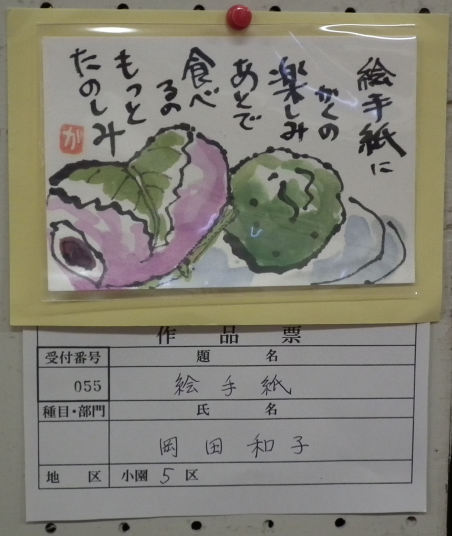 絵手紙に
かくの
楽しみ
あとで
食べ
るの
もっと
たのしみ
か
作品票
受付番号 題名
055 絵手紙
種目・部門 氏名
岡田和子
地区 小園 5 区